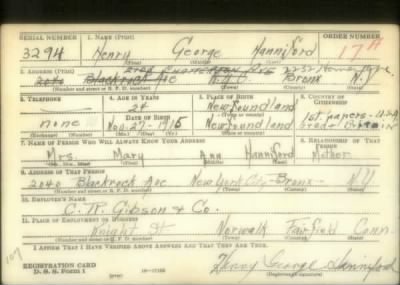 SERIAL NUMBER 1. NAME (Print) ORDER NUMBER
3294 Henry George Hanniford 17
(First) (Middle) (Last)
2. ADDRESS (Print)
2040 Blackrock Ave N.Y.C Bronx N.Y.
(Number and street or R. F. D. number) (Town) (County) (State)
3. TELEPHONE 4. AGE IN YEARS 5. PLACE OF BIRTH 6. COUNTRY OF CITIZENSHIP
24 Newfoundland 1st papers - U.S.A
DATE OF BIRTH (Town or county)
none Nov-27-1915 Newfoundland Great Britain
(Exchange) (Number) (Mo.) (Day) (Yr.) (State or country)
7. NAME OF PERSON WHO WILL ALWAYS KNOW YOUR ADDRESS 8. RELATIONSHIP OF THAT PERSON
Mrs. Mary Ann Hanniford Mother
(Mr., Mrs., Miss) (First) (Middle) (Last)
9. ADDRESS OF THAT PERSON
2040 Blackrock Ave New York City Bronx N.Y.
(Number and street or R. F. D. number) (Town) (County) (State)
10. EMPLOYER'S NAME
C. R. Gibson & Co.
11. PLACE OF EMPLOYMENT OR BUSINESS
Knight St Norwalk Fairfield Conn.
(Number and street or R. F. D. number) (Town) (County) (State)
I AFFIRM THAT I HAVE VERIFIED ABOVE ANSWERS AND THAT THEY ARE TRUE.
REGISTRATION CARD
D. S. S. Form 1 Henry George Hanniford
(Registrant's signature)